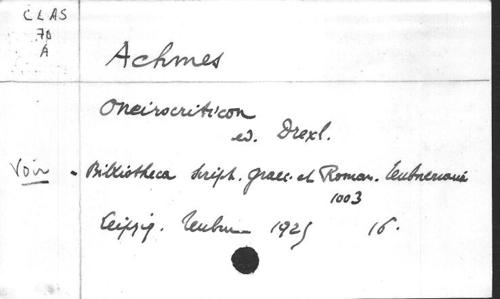 CLAS
70
A
Achmes
Oneirocriticon
ed. Drexl.
Voir - Bibliotheca script. graec. et Roman. Teubneriana
1003
Leipzig. Teubn 1925 16.